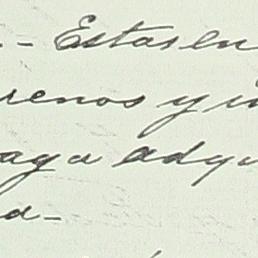 .- Estas en
renos y in
aga adqu
a-